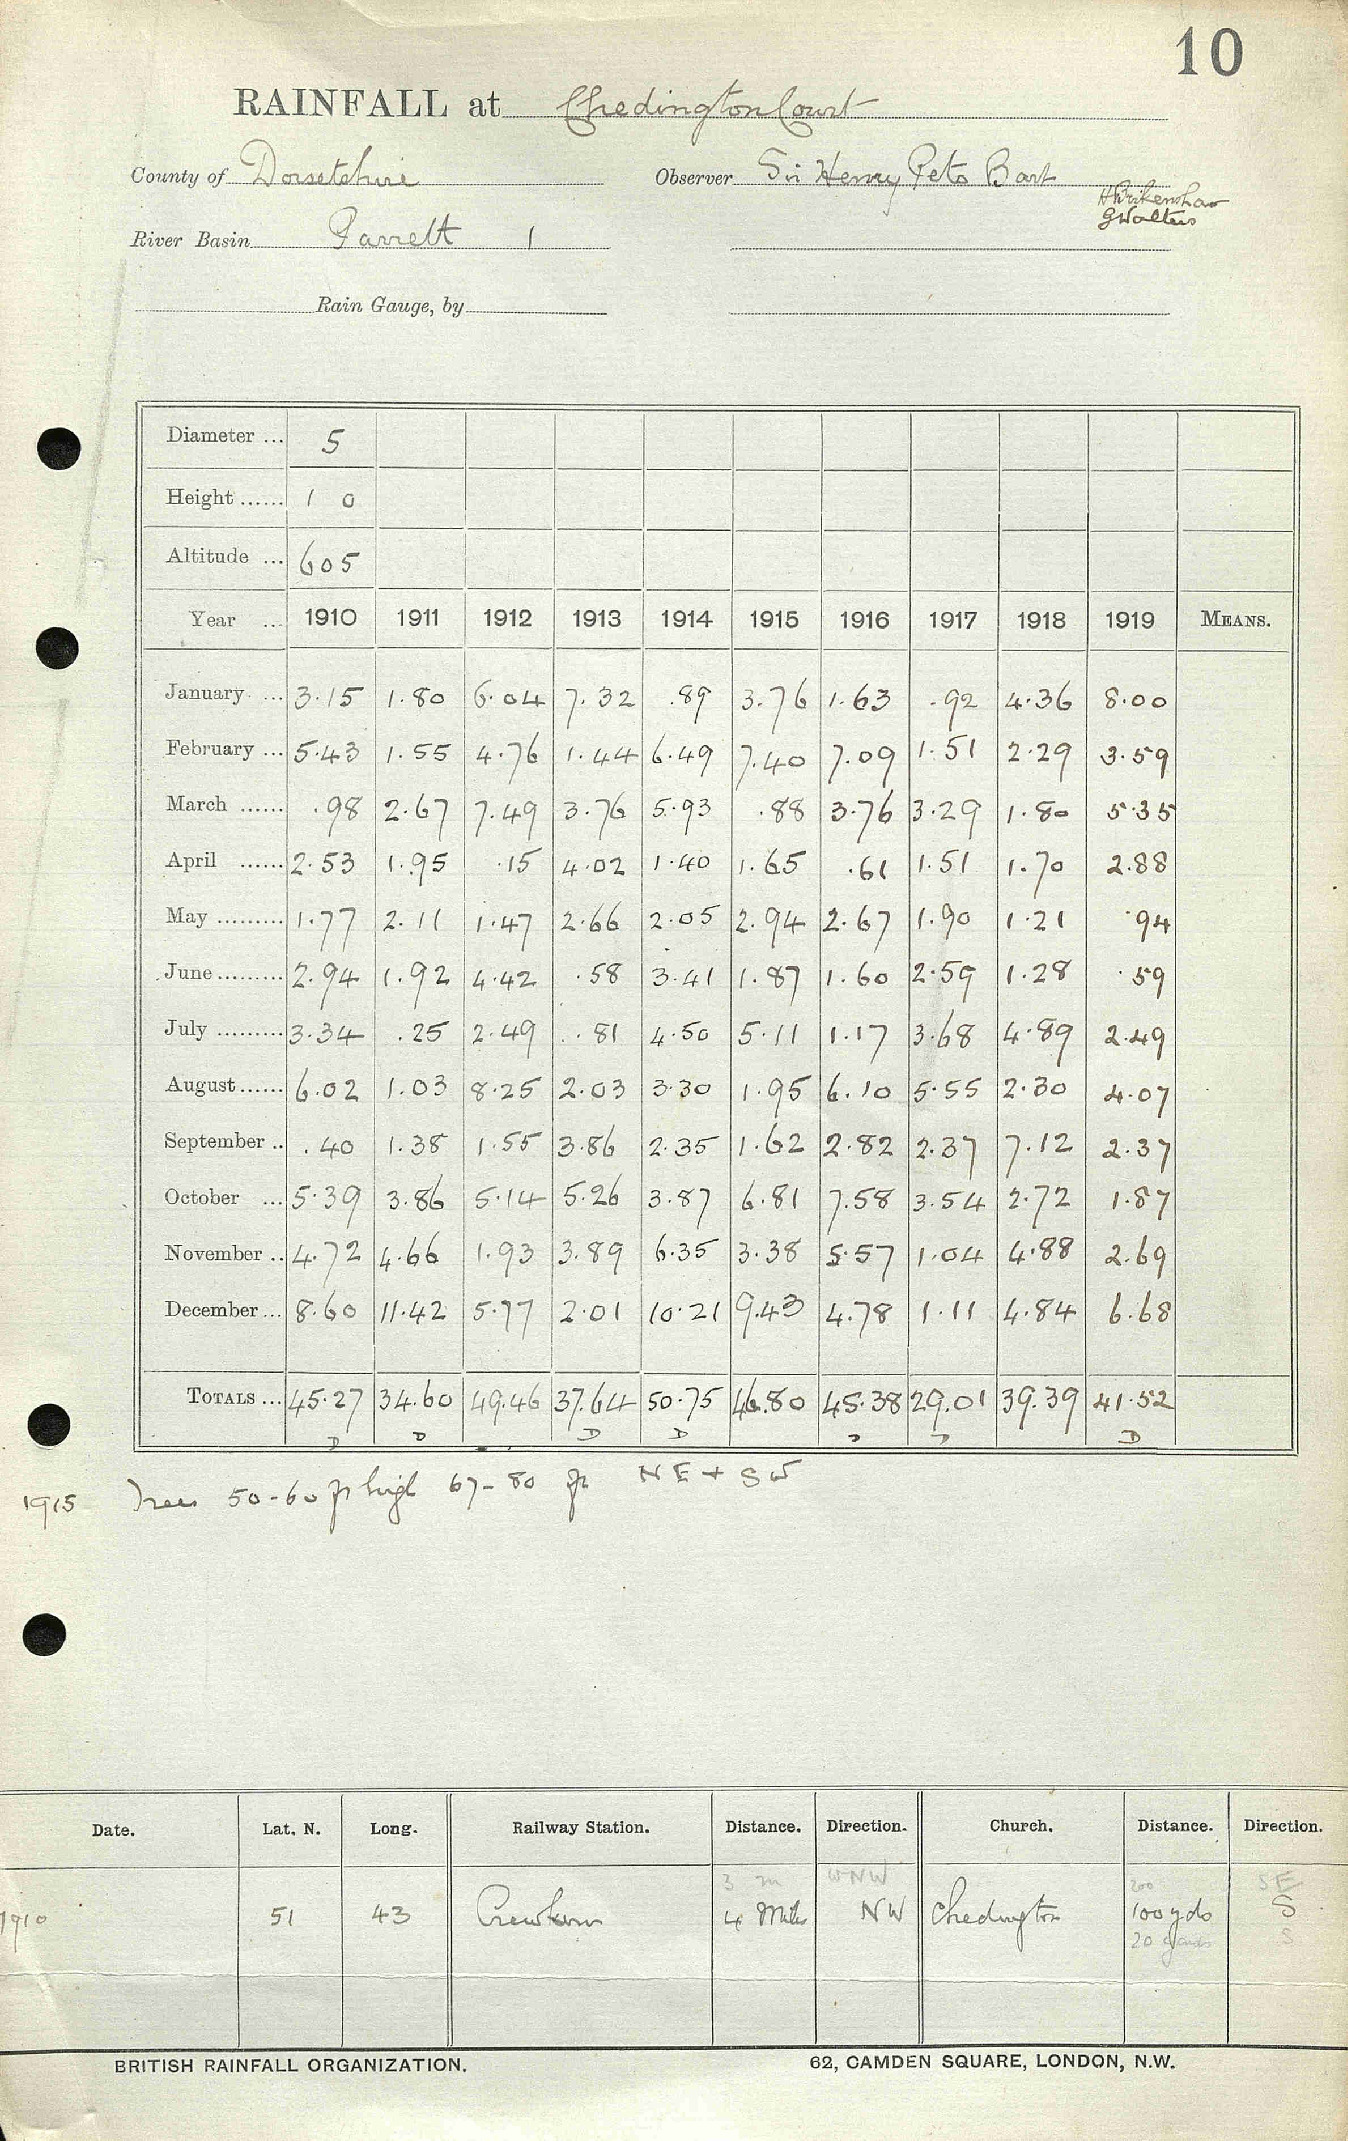 10
RAINFALL at Chedington Court
County of Dorsetshire Observer Sir Henry Peto Bart
G Walters
River Basin Parrett 1
Rain Gauge, by
Diameter ... 5
Height ...... 1 0
Altitude ... 605
Year ... 1910 1911 1912 1913 1914 1915 1916 1917 1918 1919 MEANS.
January ... 3.15 1.80 6.04 7.32 .89 3.76 1.63 .92 4.36 8.00
February ... 5.43 1.55 4.76 1.44 6.49 7.40 7.09 1.51 2.29 3.59
March ...... .98 2.67 7.49 3.76 5.93 .88 3.76 3.29 1.80 5.35
April ...... 2.53 1.95 .15 4.02 1.40 1.65 .61 1.51 1.70 2.88
May ......... 1.77 2.11 1.47 2.66 2.05 2.94 2.67 1.90 1.21 .94
June ......... 2.94 1.92 4.42 .58 3.41 1.87 1.60 2.59 1.28 .59
July ......... 3.34 .25 2.49 .81 4.50 5.11 1.17 3.68 4.89 2.49
August ...... 6.02 1.03 8.25 2.03 3.30 1.95 6.10 5.55 2.30 4.07
September .. .40 1.38 1.55 3.86 2.35 1.62 2.82 2.37 7.12 2.37
October ... 5.39 3.86 5.14 5.26 3.87 6.81 7.58 3.54 2.72 1.87
November .. 4.72 4.66 1.93 3.89 6.35 3.38 5.57 1.04 4.88 2.69
December ... 8.60 11.42 5.77 2.01 10.21 9.43 4.78 1.11 4.84 6.68
TOTALS ... 45.27 34.60 49.46 37.64 50.75 46.80 45.38 29.01 39.39 41.52
D D D D D D D
1915 Trees 50-60 ft high 67-80 ft NE + SW
Date. Lat. N. Long. Railway Station. Distance. Direction. Church. Distance. Direction.
3 m WNW 200 SE
1910 51 43 Crewkerne 4 Miles NW Chedington 100 yds S
20 yards S
BRITISH RAINFALL ORGANIZATION. 62, CAMDEN SQUARE, LONDON, N.W.